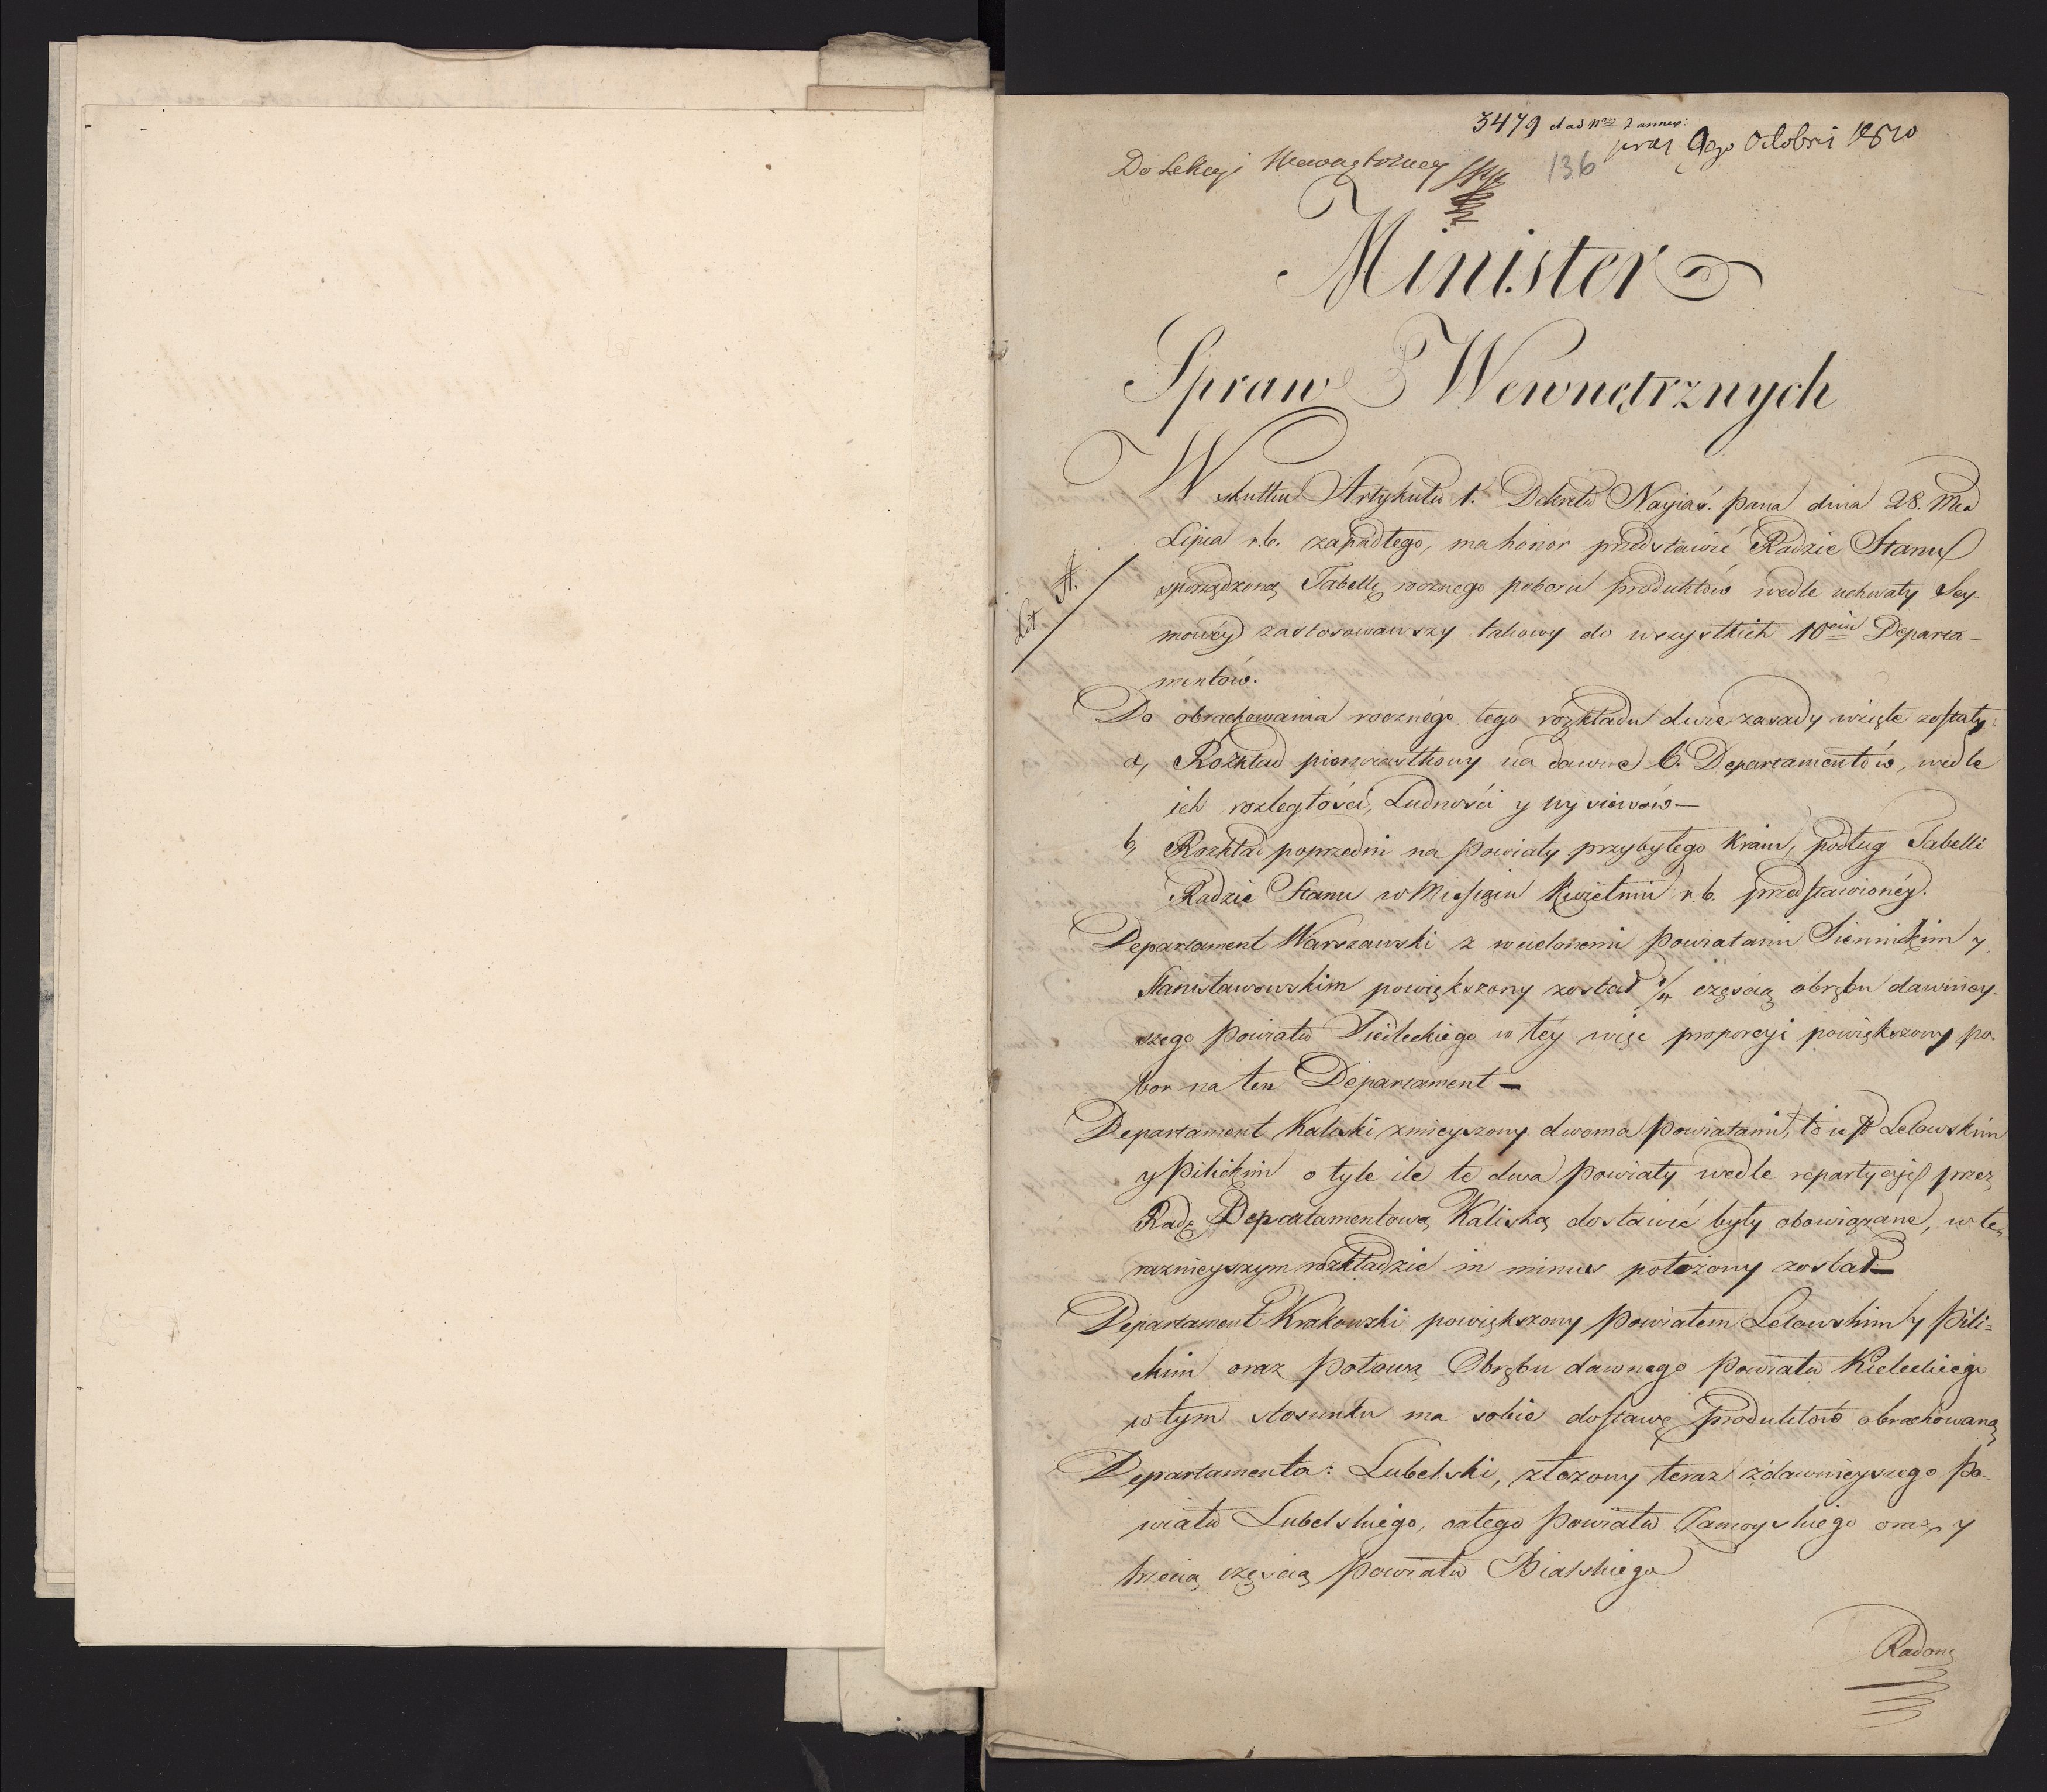 3479 et ad Nrum 2 annex:
praes 9go Octobris 1810
Do Sekcyi Wewnętrzney
136
Minister
Spraw Wewnętrznych
Lit A.
W skutku Artykułu 1. Dekretu Nayiaś. Pana dnia 28. Mca
Lipca r.b. zapadłego, ma honor przedstawić Radzie Stanu
sporządzoną Tabellę rocznego poboru produktów wedle uchwały Sey-
mowéy zastosowawszy takowy do wszystkich 10ciu Departa-
mentów.
Do obrachowania rocznégo tego rozkładu dwie zasady wzięte zostały:
a, Rozkład pierwiastkowy na dawne 6. Departamentów, wedle
ich rozległości, Ludności y wysiewów—
b, Rozkład poprzedni na Powiaty przybyłego Kraiu, podług Tabelli
Radzie Stanu w Miesiącu Kwietniu r.b. przedstawionéy.
Departament Warszawski z wcielonemi Powiatami Siennickim y
Stanisławowskim powiększony został 3/4 częścią obrębu dawniey-
szego Powiatu Siedleckiego w téy więc proporcyi powiększony po-
bor na ten Departament—
Departament Kaliski zmieyszony dwoma Powiatami, to iest Lelowskim
y Pilickim o tyle ile te dwa Powiaty wedle repartycyi przez
Radę Departamentową Kaliską dostawić były obowiązane, w te-
raznieyszym rozkładzie in minus położony został—
Departament Krakowski powiększony Powiatem Lelowskim y Pili-
ckim oraz Połową Obrębu dawnego Powiatu Kieleckiego
w tym stosunku ma sobie dostawę Produktów obrachowaną
Departamenta: Lubelski, złożony teraz z dawnieyszego Po-
wiatu Lubelskiego, całego Powiatu Zamoyskiego oraz y
trzecią częścią Powiatu Bialskiego